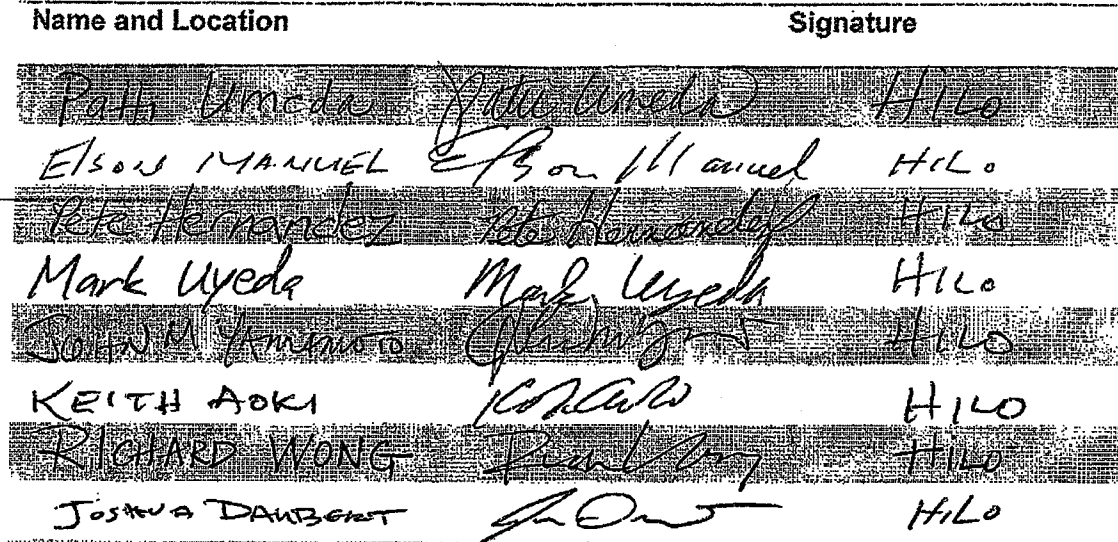 Name and Location Signature
Patti Umeda Patti Umeda HILO
Elson MANUEL Elson Manuel HILO
Pete Hernandez Pete Hernandez HILO
Mark Uyeda Mark Uyeda HILO
JOHN M YAMIMOTO HILO
KEITH AOKI HILO
RICHARD WONG HILO
JOSHUA DAUBERT HILO